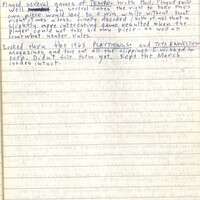 Played several games of with Paul. Played
well In several cases the right to take one's
own piece would lead to a win, while without that
right, a loss. Finally decided (both of us) that a
slightly more interesting game resulted when the
player could not take his own piece - as well as
somewhat neater rules.
Looked thru the 1963 PLAYTHINGS and TOYS & NOVELTIES
magazines and out all the clippings I wished to
keep. Didn't file them yet. Kept the March
issues intact.